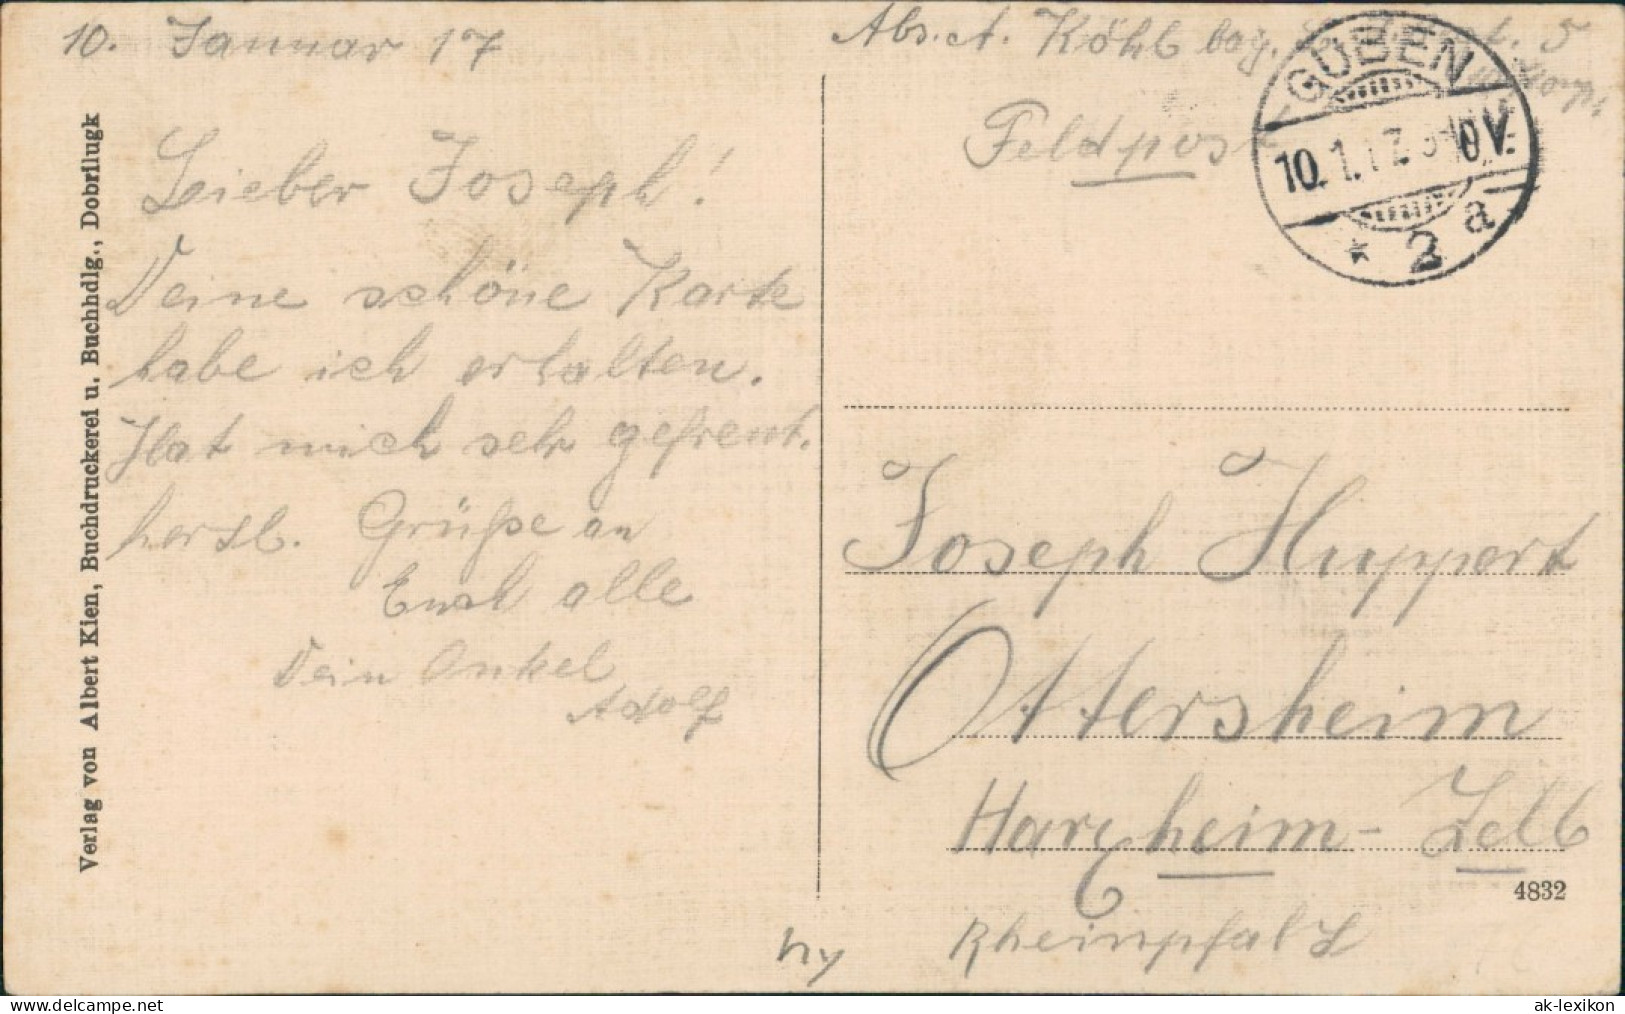 10. Januar 17
Lieber Joseph!
Deine schöne Karte
habe ich erhalten.
Hat mich sehr gefreut.
herzl. Grüße an
Euch alle
Dein Onkel
Adolf
Verlag von Albert Kien, Buchdruckerei u. Buchhdlg., Dobrilugk
Abs. A. Köhl bay.
Feldpost
GUBEN
10.1.17. 0V.
* 2 a
Joseph Huppert
Ottersheim
Harxheim - Zell
4832
Rheinpfalz
ny
www.delcampe.net
ak-lexikon